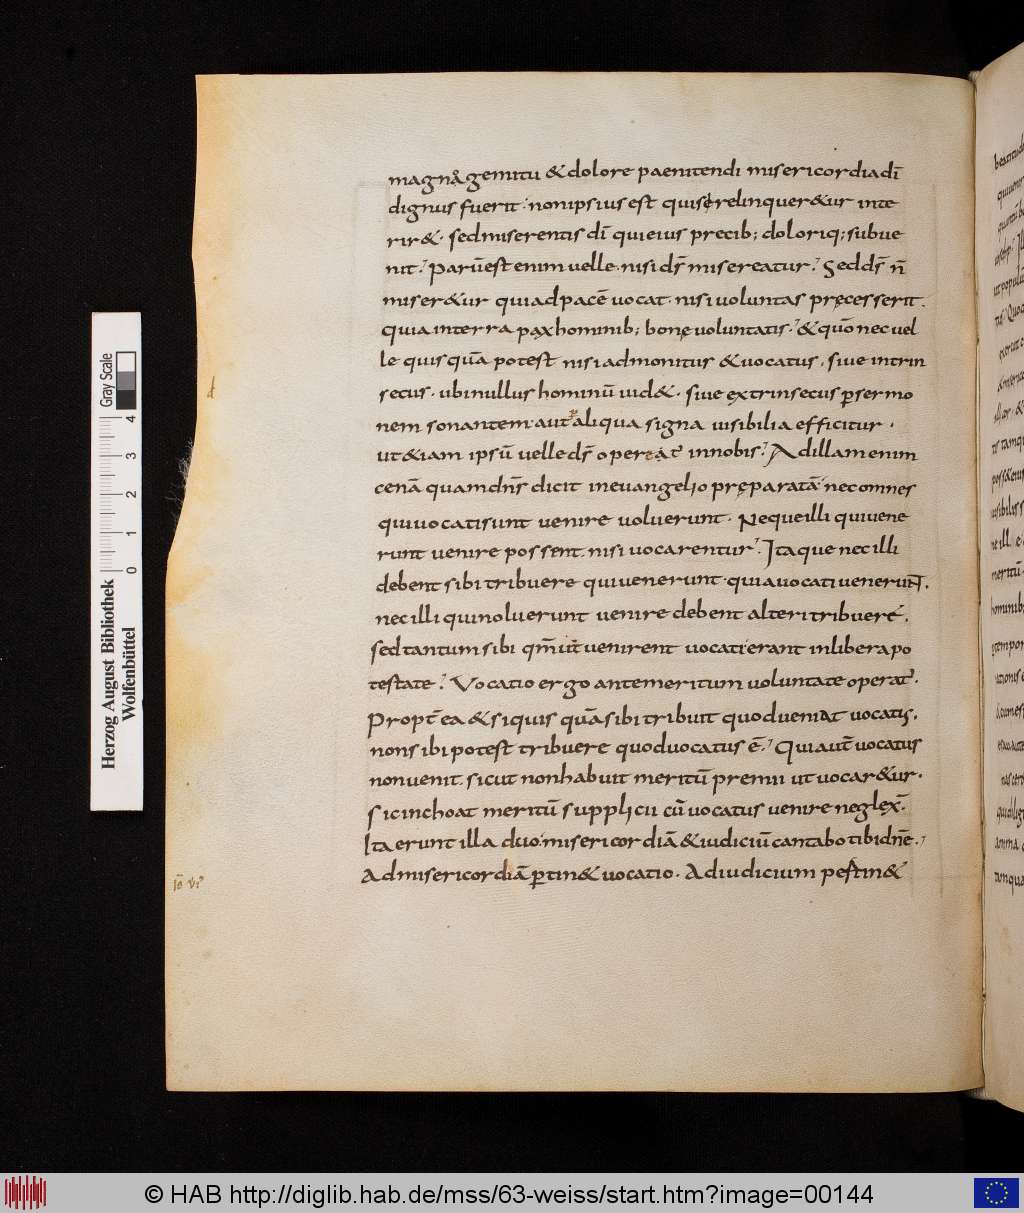 magno gemitu & dolore paenitendi misericordia dī
dignus fuerit · non ipsius est qui se relinquer&ur inte
rir& · sed miserentis dī qui eius precib; doloriq; subue
nit · Parū est enim uelle · nisi ds̄ misereatur · Sed ds̄ n̄
miser&ur qui ad pacē uocat · nisi uoluntas pręcesserit ·
quia in terra pax hominib; bonę uoluntatis · & quō nec uel
le quisquā potest nisi admonitus & uocatus · siue intrin
secus · ubi nullus hominū uid& · siue extrinsecus p̄ sermo
nem sonantem · aut p̄ aliqua signa uisibilia efficitur ·
ut &iam ipsū uelle ds̄ operat̄ in nobis · Ad illam enim
cenā quam dn̄s dicit in euangelio pręparatā nec omnes
qui uocati sunt uenire uoluerunt · Neque illi qui uene
runt uenire possent · nisi uocarentur · Itaque nec illi
debent sibi tribuere qui uenerunt · quia uocati uenerunt ·
nec illi qui noluerunt uenire debent alteri tribuere ·
sed tantum sibi qm̄ ut uenirent uocati erant in libera po
testate · Vocatio ergo ante meritum uoluntatē operat̄ ·
Propt̄ ea & si quis quā sibi tribuit quod ueniat uocatus ·
non sibi potest tribuere quod uocatus ē · Qui aut̄ uocatus
non uenit · sicut non habuit meritū premii ut uocar&ur ·
sic inchoat meritū supplicii cū uocatus uenire neglex̄ ·
Ita erunt illa duo · misericordiā & iudiciū cantabo tibi dn̄e ·
Ad misericordiā p̄tin& uocatio · Ad iudicium
Gray Scale
0 1 2 3 4
Herzog August Bibliothek
Wolfenbüttel
© HAB http://diglib.hab.de/mss/63-weiss/start.htm?image=00144